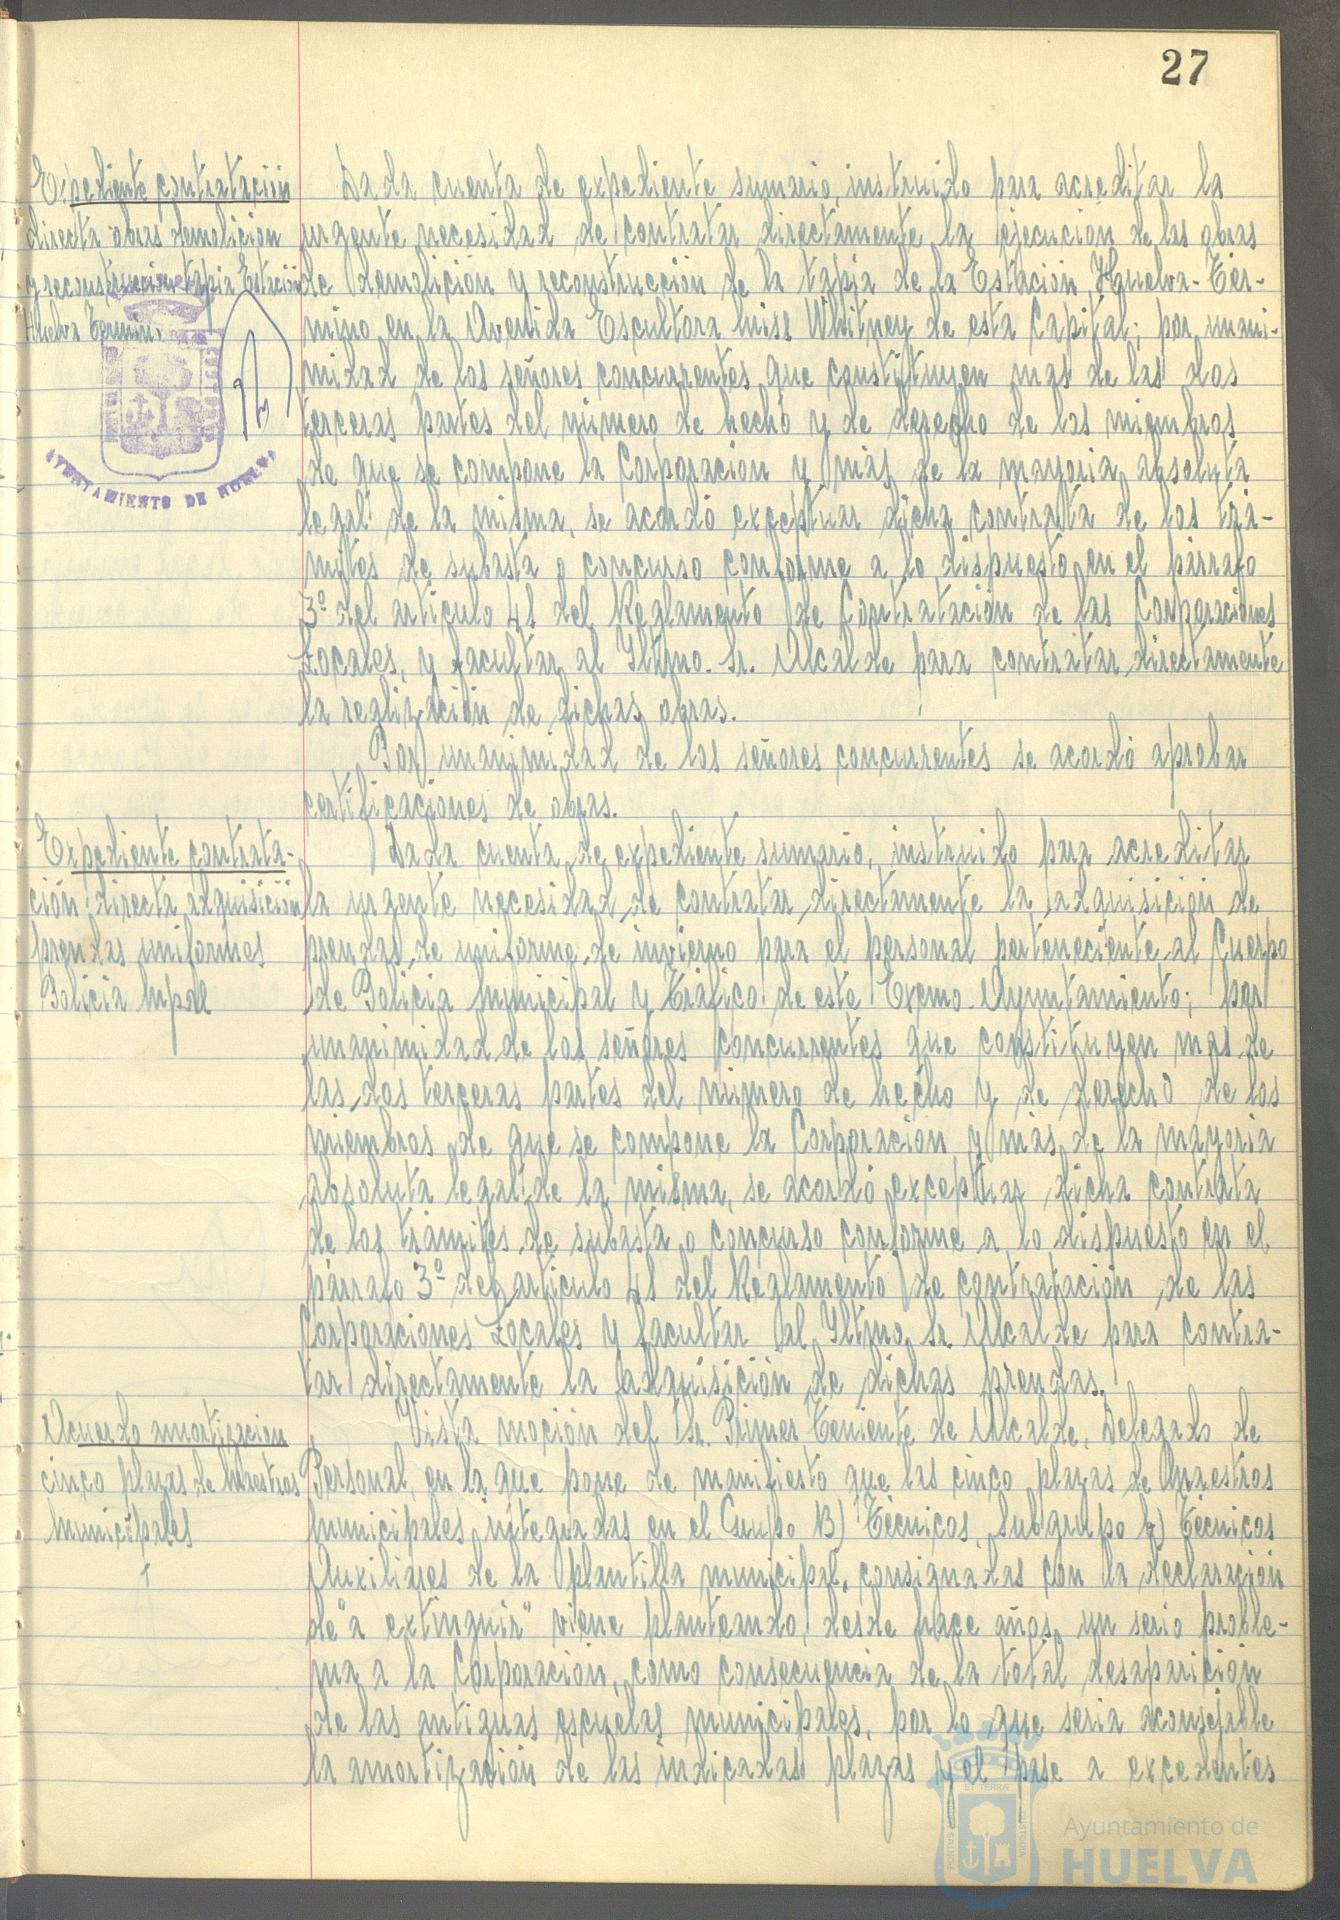 27
Expediente contratación
directa obras demolición
y reconstrucción tapia Estación
Huelva Término.
AYUNTAMIENTO DE HUELVA
Dada cuenta de expediente sumario, instruido para acreditar la
urgente necesidad de contratar directamente la ejecución de las obras
de demolición y reconstrucción de la tapia de la Estación Huelva-Tér-
mino en la Avenida Escultora Miss Whitney de esta Capital; por unani-
midad de los señores concurrentes que constituyen mas de las dos
terceras partes del número de hecho y de derecho de los miembros
de que se compone la Corporación y más de la mayoria absoluta
legal de la misma, se acordó exceptuar dicha contrata de los trá-
mites de subasta o concurso conforme a lo dispuesto en el párrafo
3º del artículo 41 del Reglamento de Contratación de las Corporaciones
Locales, y facultar al Iltmo. Sr. Alcalde para contratar directamente
la realización de dichas obras.
Por unanimidad de los señores concurrentes se acordó aprobar
certificaciones de obras.
Expediente contrata-
ción directa adquisición
prendas uniformes
Policia Mpal
Dada cuenta de expediente sumario, instruido para acreditar
la urgente necesidad de contratar directamente la adquisición de
prendas de uniforme de invierno para el personal perteneciente al Cuerpo
de Policia Municipal y Tráfico de este Excmo. Ayuntamiento; por
unanimidad de los señores concurrentes que constituyen mas de
las dos terceras partes del número de hecho y de derecho de los
miembros de que se compone la Corporación y más de la mayoria
absoluta legal de la misma, se acordó exceptuar dicha contrata
de los trámites de subasta o concurso conforme a lo dispuesto en el
párrafo 3º del artículo 41 del Reglamento de contratación de las
Corporaciones Locales y facultar al Iltmo. Sr. Alcalde para contra-
tar directamente la adquisición de dichas prendas.
Acuerdo amortizacion
cinco plazas de Maestros
Municipales
Vista moción del Sr. Primer Teniente de Alcalde, Delegado de
Personal, en la que pone de manifiesto que las cinco plazas de Maestros
municipales integradas en el Grupo B) Técnicos, Subgrupo b) Técnicos
Auxiliares de la plantilla municipal, consignadas con la declaración
de "a extinguir" viene planteando, desde hace años, un serio proble-
ma a la Corporación, como consecuencia de la total desaparición
de las antiguas escuelas municipales, por lo que seria aconsejable
la amortización de las indicadas plazas y el pase a excedentes
Ayuntamiento de
HUELVA